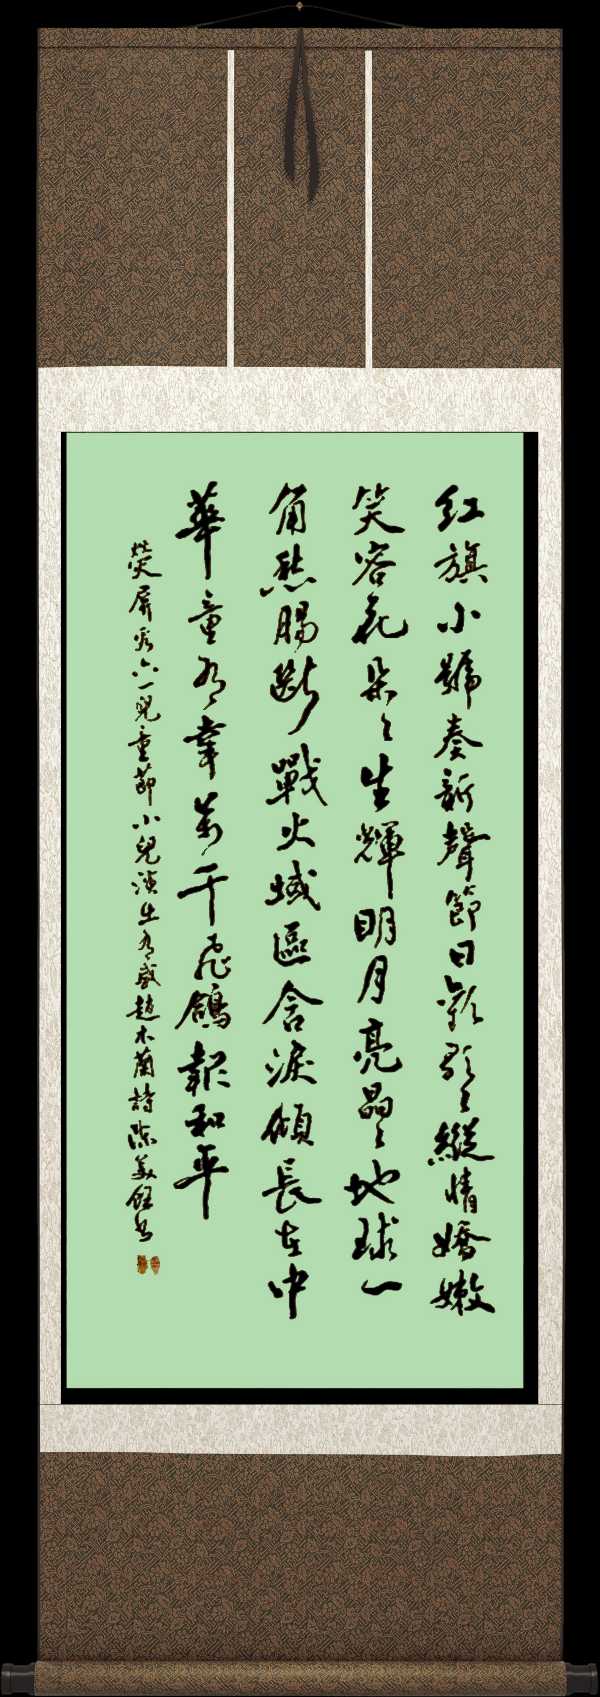 紅旗小號奏新聲節日歡歌々縱情嬌嫩
笑容花朵々生輝明月亮晶々地球一
角愁腸斷戰火城區含淚傾長在中
華童有幸萬千飛鴿報和平
熒屏看六一兒童節小兒演出有感趙木蘭詩陈義經书